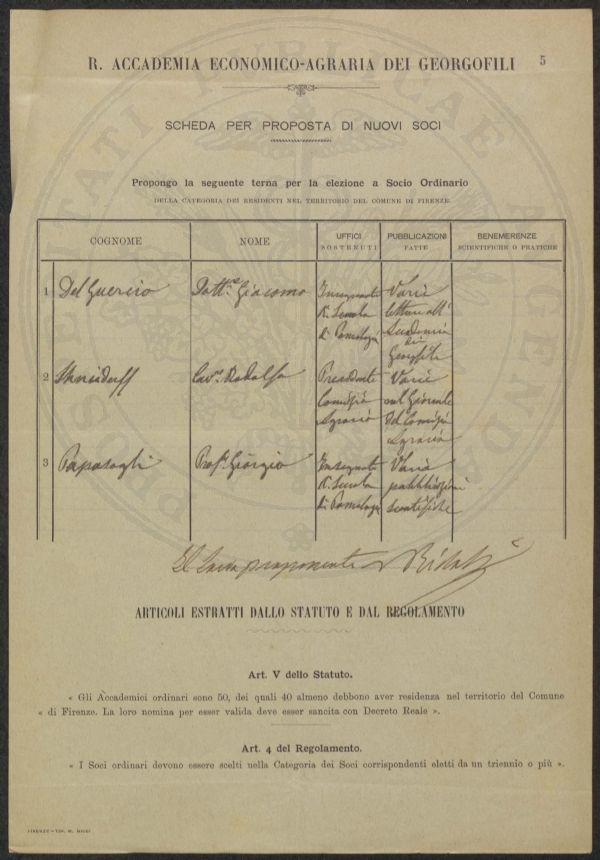 R. ACCADEMIA ECONOMICO-AGRARIA DEI GEORGOFILI
5
SCHEDA PER PROPOSTA DI NUOVI SOCI
Propongo la seguente terna per la elezione a Socio Ordinario
DELLA CATEGORIA DEI RESIDENTI NEL TERRITORIO DEL COMUNE DI FIRENZE.
COGNOME
NOME
UFFICI
SOSTENUTI
PUBBLICAZIONI
FATTE
BENEMERENZE
SCIENTIFICHE O PRATICHE
1 Del Guercio
Dott.e Giacomo
Insegnante
R. Scuola
di Pomologia
Varie
letture all'
Accademia
dei
Georgofili
2
Cav.re Rodolfo
Presidente
Comizio
Agrario
Varie
nel Giornale
del Comizio
Agrario
3 Papasogli
Prof. Giorgio
Insegnante
R. Scuola
di Pomologia
Varie
pubblicazioni
scientifiche
Il Socio proponente
ARTICOLI ESTRATTI DALLO STATUTO E DAL REGOLAMENTO
Art. V dello Statuto.
« Gli Accademici ordinari sono 50, dei quali 40 almeno debbono aver residenza nel territorio del Comune
« di Firenze. La loro nomina per esser valida deve esser sancita con Decreto Reale ».
Art. 4 del Regolamento.
« I Soci ordinari devono essere scelti nella Categoria dei Soci corrispondenti eletti da un triennio o più ».
FIRENZE — TIP. M. RICCI